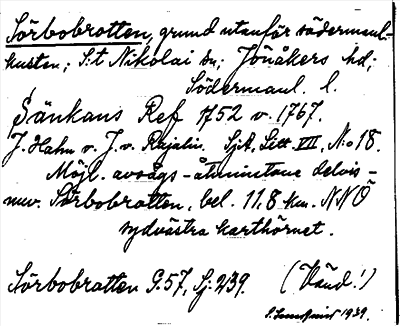 Sörbobrotten, grund utanför södermanl.-
kusten; S:t Nikolai sn; Jönåkers hd;
Södermanl. l.
Sänkans Ref 1752 v. 1767.
J. Hahn v. J. v. Rajalin. Sjk, Litt. VII, N:o 18.
Möjl. avvägs - åtminstone delvis -
nuv. Sörbobrotten, bel. 11.8 km. NNÖ
sydvästra karthörnet.
Sörbobrotten G. 57, Sj. 239. (Vänd!)
1939.